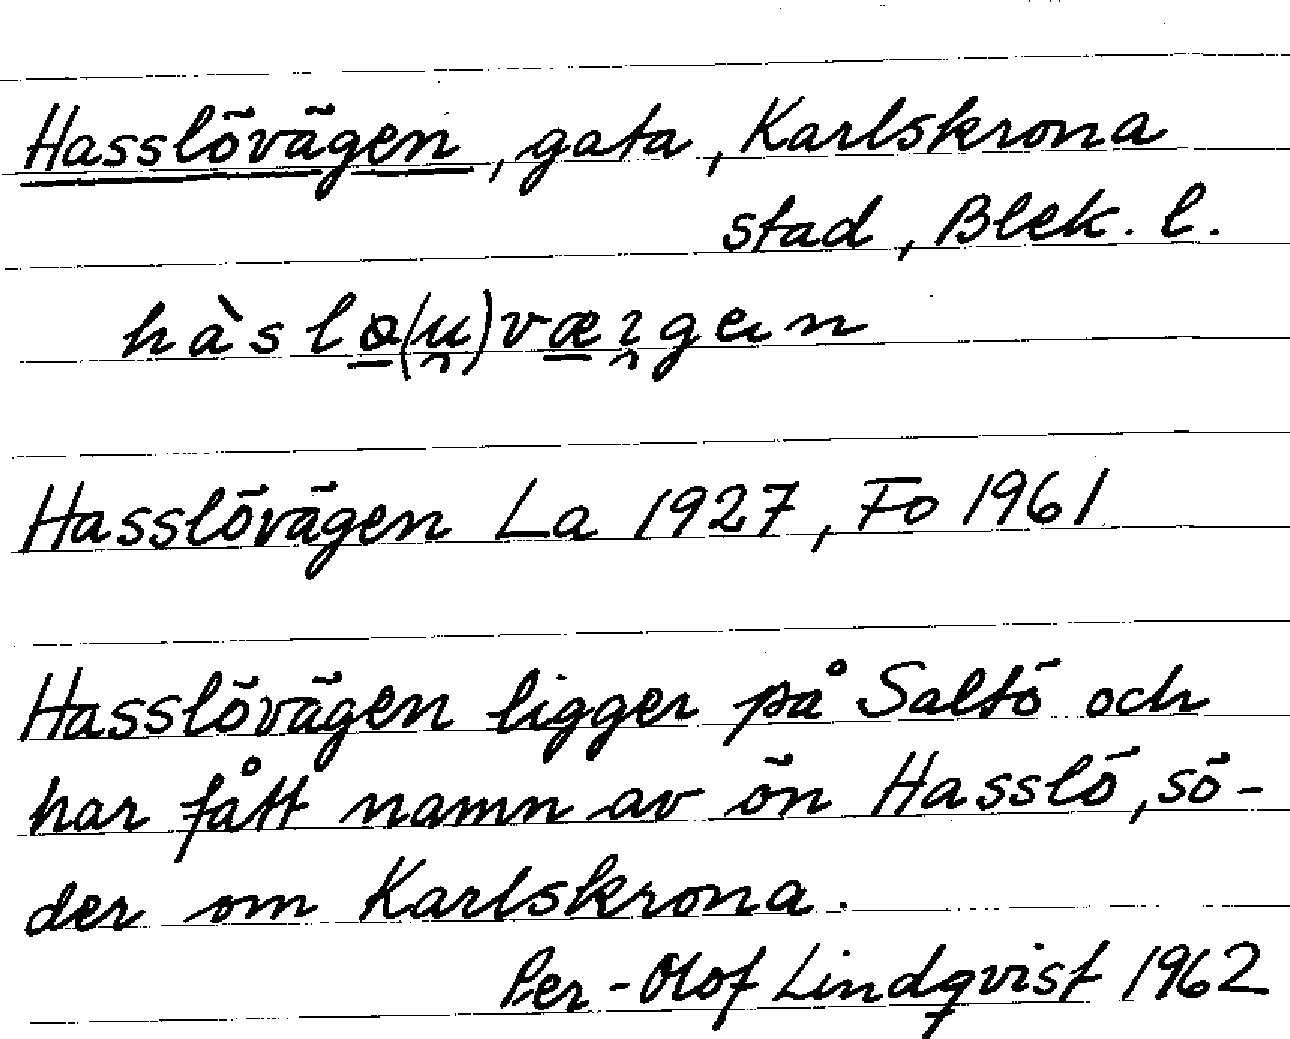 Hasslövägen, gata, Karlskrona
stad, Blek. l.
hàslo̲(u̯)væ̲ɪ̯gen
Hasslövägen La 1927, Fo 1961
Hasslövägen ligger på Saltö och
har fått namn av ön Hasslö, sö-
der om Karlskrona.
Per-Olof Lindqvist 1962